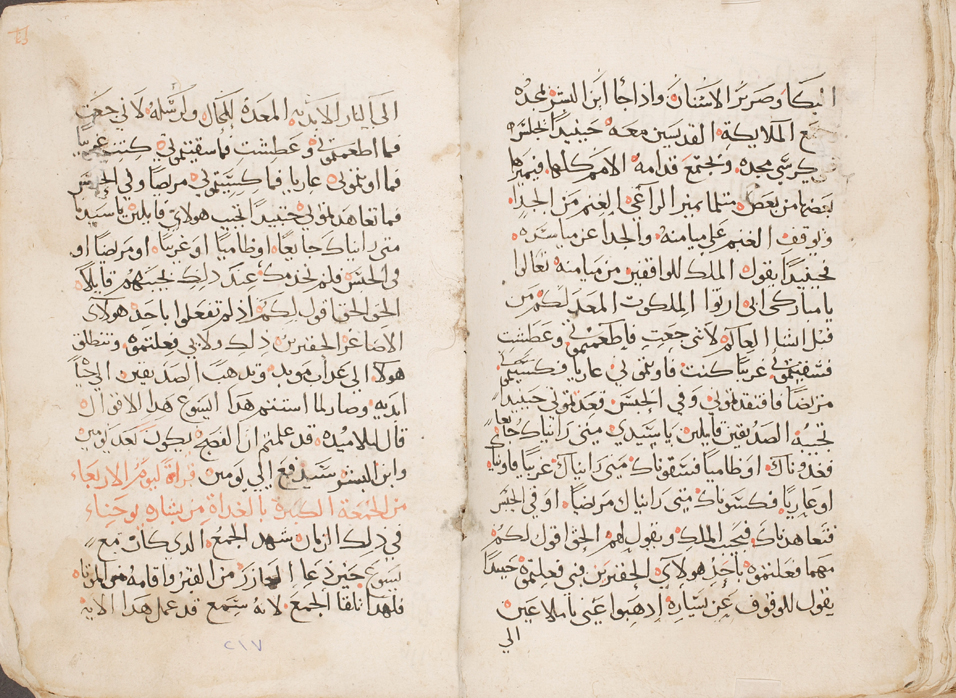 البكا وصرير الاسنان واذا جا ابن البشر بمجده
مع الملايكة القديسين معه حينيدا يجلس
كرسي مجده وتجتمع قدامه الامم كلها فيميزها
بعضها من بعض مثلما يميز الراعي الغنم من الجدا
ويوقف الغنم علي ميامنه والجدا عن مياسره
فحينيدا يقول الملك للواقفين من ميامنه تعالوا
يا مباركي ابي ارتوا الملكوت المعد لكم من
قبل انشا العالم لانني جعت فاطعمتموني وعطشت
فسقيتموني غريبا كنت فاويتموني عاريا فكسيتموني
مريضا فافتقدتموني وفي الحبس فعدتموني حينيدا
تجيبه الصديقين قايلين يا سيدي متى رايناك جايعا
فغدوناك او ظاميا فسقوناك متى رايناك غريبا فاويناك
او عاريا فكسوناك متى رايناك مريضا او في الحبس
فتعاهدناك فيجيب الملك ويقول لهم الحق اقول لكم
مهما فعلتموه باحد هولاي الحقيرين فبي فعلتموه حينيدا
يقول للوقوف عن يساره ادهبوا عني يا ملاعين
الي
الي النار الابديه المعده للمحال ورسله لاني جعت
فما اطعمتموني وعطشت فما سقيتموني كنت غريبا
فما اويتموني عاريا فما كسيتموني مريضا وفي الحبس
فما تعاهدتموني حينيدا تجيب هولاي قايلين يا سيد
متى رايناك جايعا او ظاميا او غريبا او مريضا او
في الحبس فلم نخدمك عند دلك يجيبهم قايلا
الحق الحق اقول لكم اذ لم تفعلوا باحد هولاي
الاصاغر الحقيرين دلك ولا بي فعلتموه وتنطلق
هولاء الي عداب موبد وتدهب الصديقين الي حياة
ابديه وصار لما استتم هدا ايسوع هدا الاقوال
قال لتلاميده قد علمتم ان الفصح يكون بعد يومين
وابن البشر سيدفع الي يومين قراة ليوم الاربعاء
من الجمعة الكبيرة بالغداة من بشاره يوحناء
في دلك الزمان شهد الجمع الدي كان مع
يسوع حين دعا العازر من القبر واقامه من الموتا
فلهدا تلقا الجمع لانه سمع قد عمل هدا الايه
٢١٧